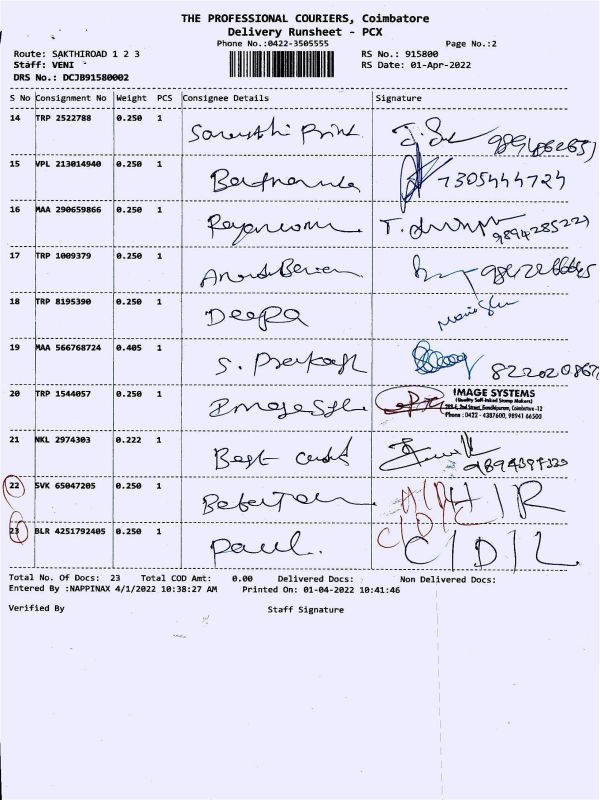 THE PROFESSIONAL COURIERS, Coimbatore
Delivery Runsheet - PCX
Phone No.:0422-3505555
Page No.:2
Route: SAKTHIROAD 1 2 3
RS No.: 915800
Staff: VENI
RS Date: 01-Apr-2022
DRS No.: DCJB91580002
S No Consignment No Weight PCS Consignee Details Signature
14 TRP 2522788 0.250 1
15 VPL 213014940 0.250 1 7305444724
16 MAA 290659866 0.250 1 9894285229
17 TRP 1009379 0.250 1
18 TRP 8195390 0.250 1 Deepa
19 MAA 566768724 0.405 1 S. Prakash
20 TRP 1544057 0.250 1 IMAGE SYSTEMS
(Quality Self-Inked Stamp Makers)
2nd Street, Gandhipuram, Coimbatore -12
Phone : 0422 - 4387600, 98941 66500
21 NKL 2974303 0.222 1 Best
22 SVK 65047205 0.250 1 H/R
23 BLR 4251792405 0.250 1 Paul. C/D/L
Total No. Of Docs: 23 Total COD Amt: 0.00 Delivered Docs: Non Delivered Docs:
Entered By :NAPPINAX 4/1/2022 10:38:27 AM Printed On: 01-04-2022 10:41:46
Verified By Staff Signature